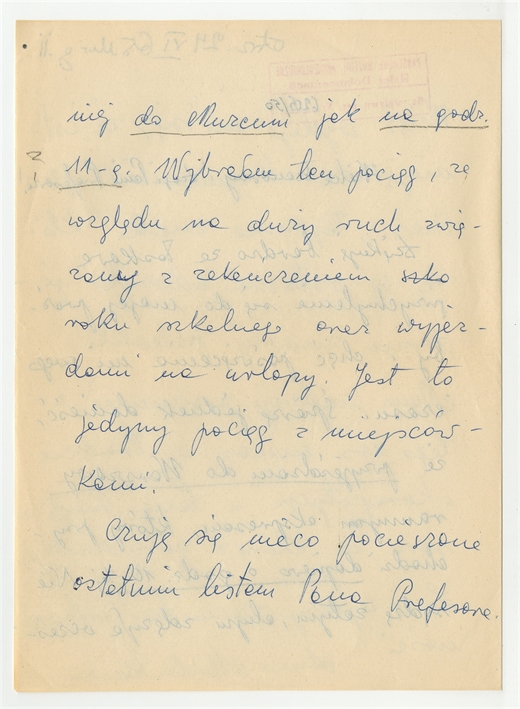 niej do Muzeum jak na godz.
11-ą. Wybrałam ten pociąg, ze
względu na duży ruch zwią-
zany z zakończeniem szko
roku szkolnego oraz wyjaz-
dami na urlopy. Jest to
jedyny pociąg z miejsców-
kami.
Czuję się nieco pocieszona
ostatnim listem Pana Profesora.